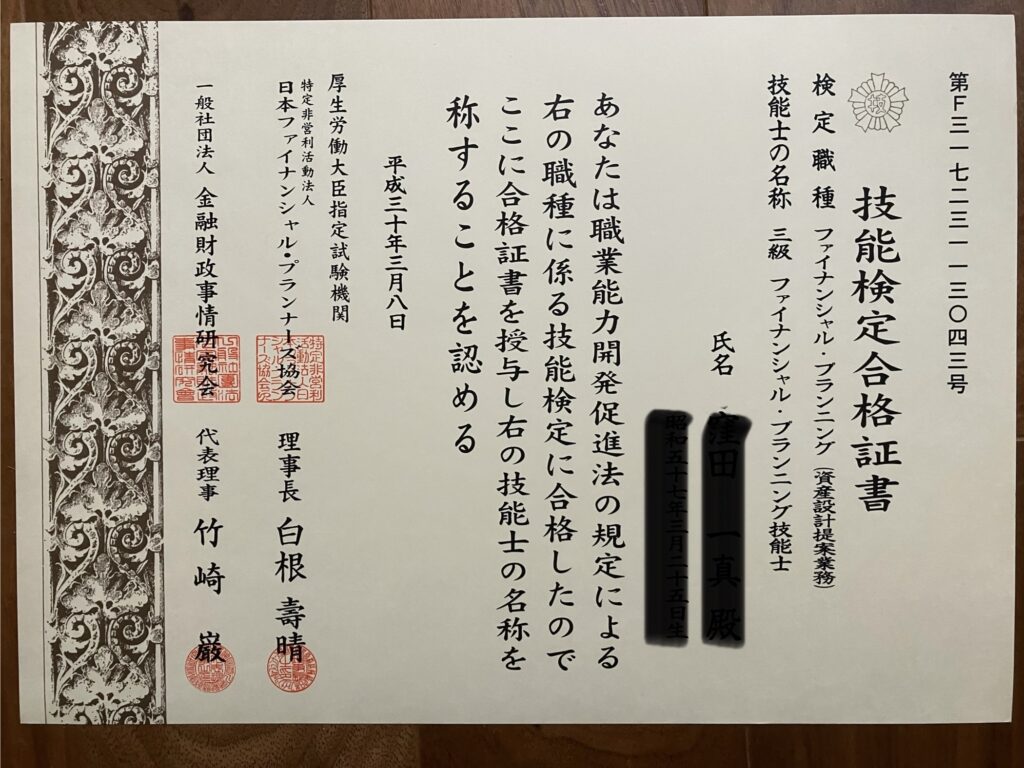 第F三一七二三一一三〇四三号
技能検定合格証書
検定職種 ファイナンシャル・プランニング（資産設計提案業務）
技能士の名称 三級 ファイナンシャル・プランニング技能士
氏名
あなたは職業能力開発促進法の規定による
右の職種に係る技能検定に合格したので
ここに合格証書を授与し右の技能士の名称を
称することを認める
平成三十年三月八日
厚生労働大臣指定試験機関
特定非営利活動法人
日本ファイナンシャル・プランナーズ協会 理事長 白根 壽晴
一般社団法人 金融財政事情研究会 代表理事 竹崎 巌